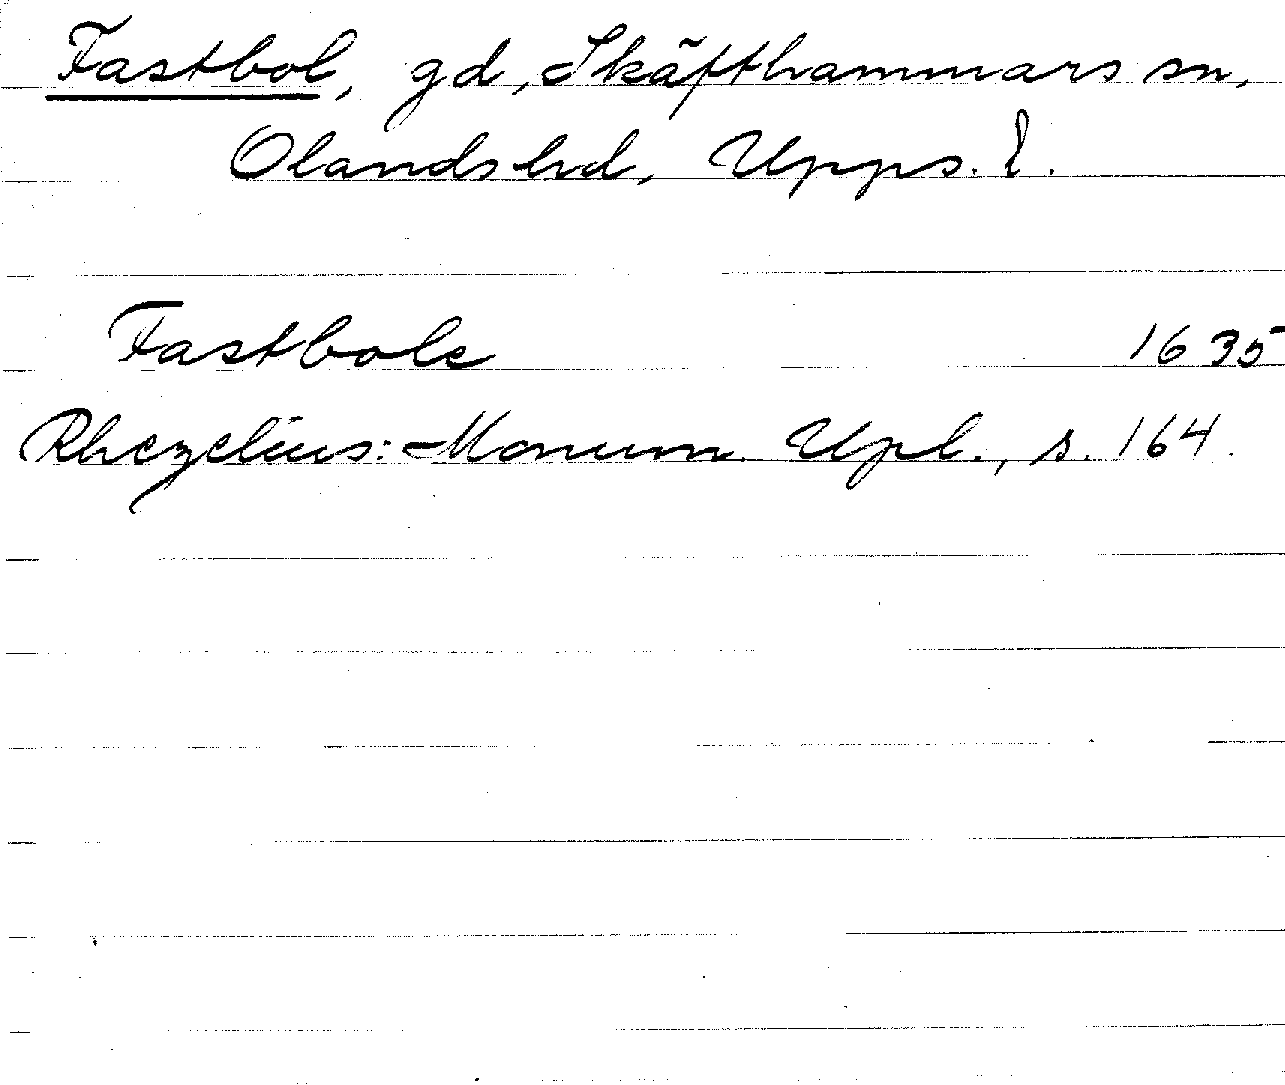 Fastbol, gd, Skäfthammars sn,
Olands hd, Upps. l.
Fastbole 1635
Rhezelius: Monum. Upl., s. 164.